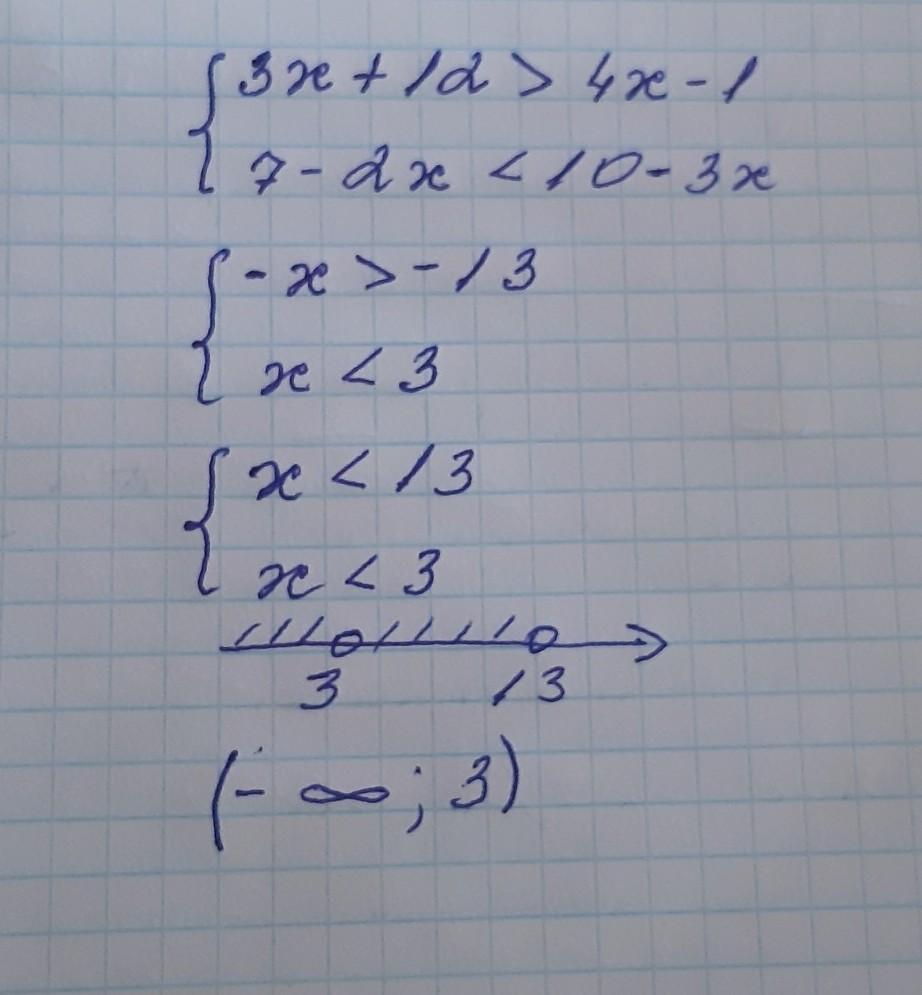 3x + 12 > 4x - 1
7 - 2x < 10 - 3x
-x > -13
x < 3
x < 13
x < 3
3 13
(-∞; 3)